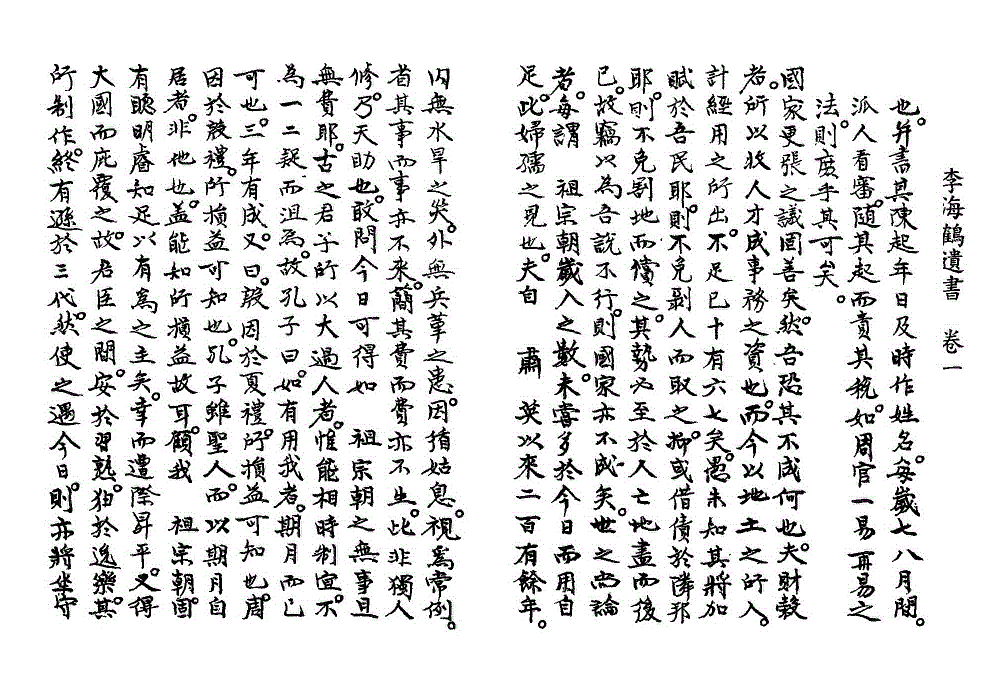 李海鶴遺書　卷一
也。并書其陳起年日及時作姓名。每歲七八月間。
派人看審。随其起而責其稅。如周官一易再易之
法。則庶乎其可矣。
國家更張之議固善矣。然吾恐其不成何也。夫財穀
者。所以收人才成事務之資也。而今以地土之所入。
計經用之所出。不足已十有六七矣。愚未知其將加
賦於吾民耶。則不免剝人而取之。抑或借債於隣邦
耶。則不免割地而償之。其勢必至於人亡地盡而後
已。故竊以為吾說不行。則國家亦不成矣。世之尚論
者。每謂　祖宗朝歲入之數。未嘗多於今日而用自
足。此婦孺之見也。夫自　肅　英以來二百有餘年。
內無水旱之灾。外無兵革之患。因循姑息。視爲常例。
省其事而事亦不來。簡其費而費亦不生。此非獨人
修。乃天助也。敢問今日可得如　祖宗朝之無事且
無費耶。古之君子所以大過人者。惟能相時制宜。不
為一二說而沮焉。故孔子曰。如有用我者。期月而已
可也。三年有成。又曰。殷因於夏禮。所損益可知也。周
因於殷禮。所損益可知也。孔子雖聖人。而以期月自
居者。非他也。盖能知所損益故耳。顧我　祖宗朝。固
有聰明睿知足以有為之主矣。幸而遭際昇平。又得
大國而庇覆之。故君臣之間。安於習熟。狃於逸樂。其
所制作。終有遜於三代。然使之遇今日。則亦將坐守